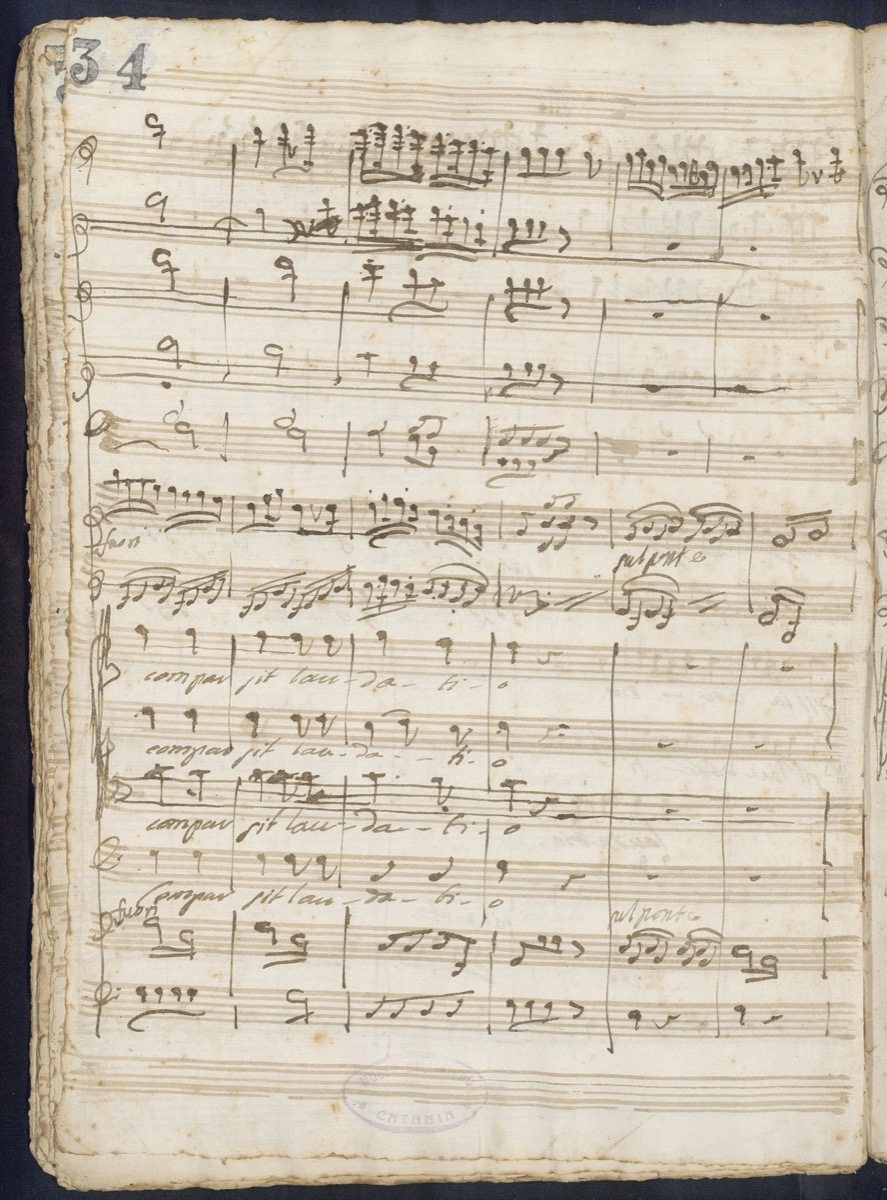 34
fuori
sul ponte
compar sit lau-da-ti-o
compar sit lau-da-ti-o
compar sit lau-da-ti-o
compar sit lau-da-ti-o
fuori
sul ponte
CATANIA